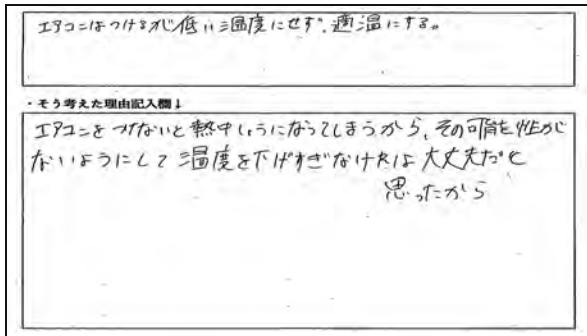 エアコンはつけるが低い温度にせず、適温にする。
・そう考えた理由記入欄↓
エアコンをつけないと熱中しょうになってしまうから、その可能性が
ないようにして温度を下げすぎなければ大丈夫だと
思ったから